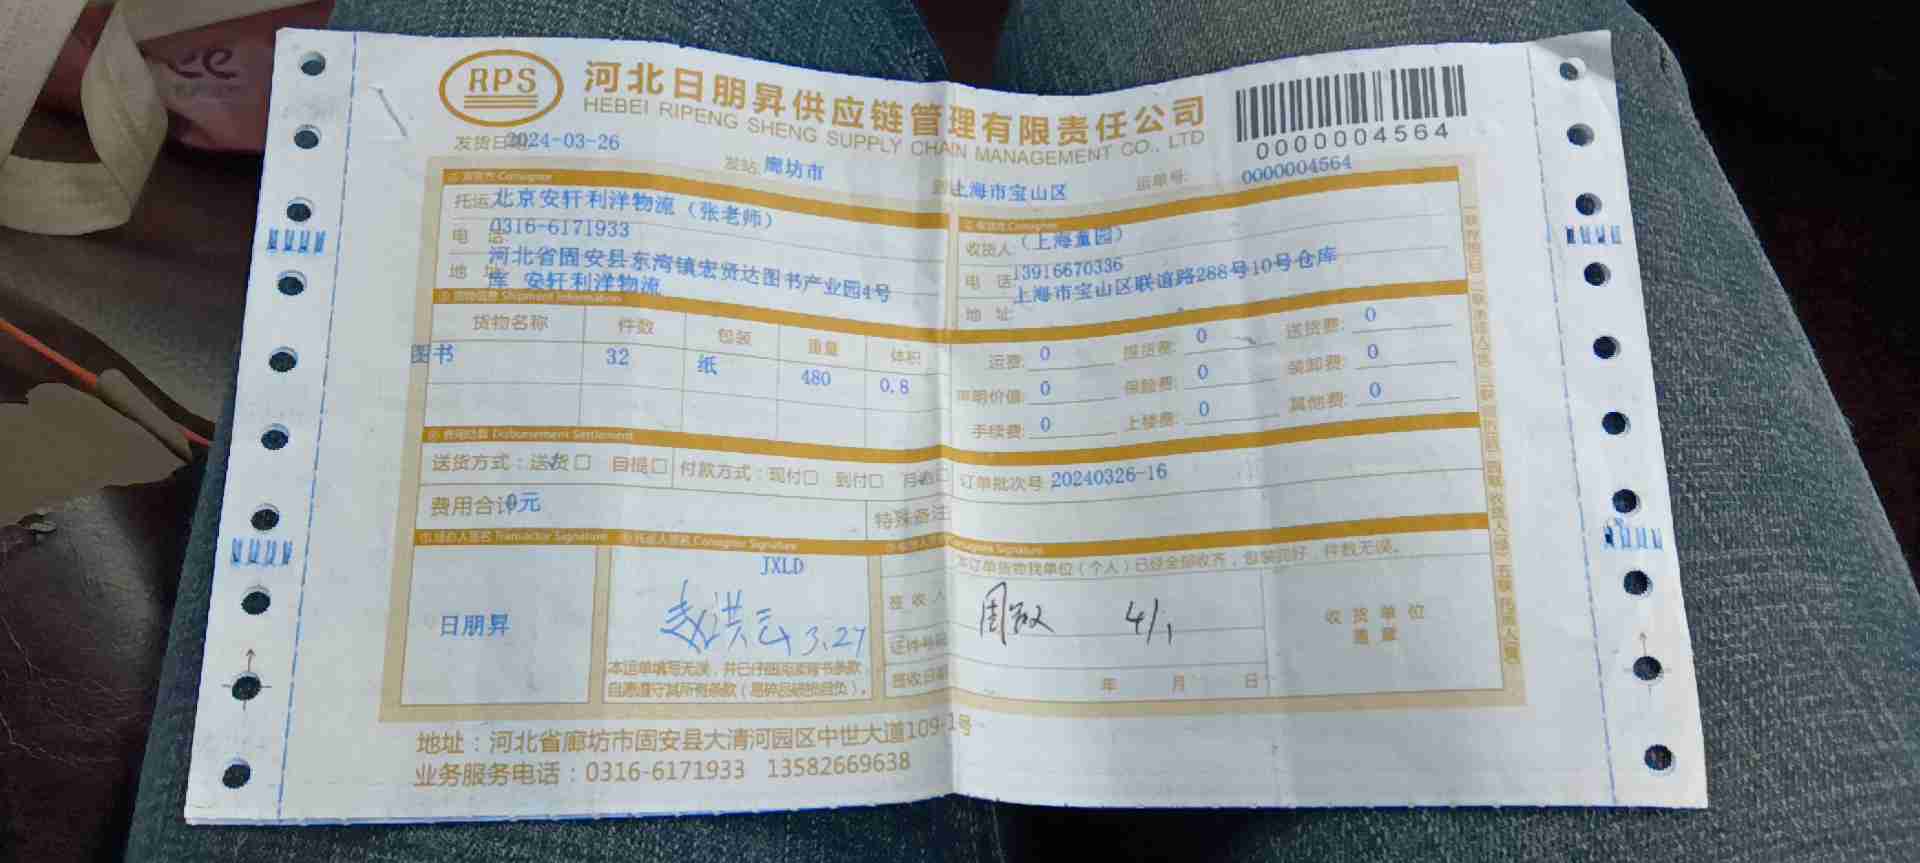 RPS
河北日朋昇供应链管理有限责任公司
HEBEI RIPENG SHENG SUPPLY CHAIN MANAGEMENT CO., LTD
0000004564
发货日 2024-03-26
发站 廊坊市
上海市宝山区
运单号: 0000004564
托运 北京安轩利洋物流（张老师）
电 话 0316-6171933
地 址 河北省固安县东湾镇宏贤达图书产业园4号
库 安轩利洋物流
收货人（上海董园）
电 话 13916670336
上海市宝山区联谊路288号10号仓库
地 址:
Shipment Information
货物名称 件数 包装 重量 体积
图书 32 纸 480 0.8
运费: 0 提货费: 0 送货费: 0
声明价值: 0 保险费: 0 装卸费: 0
手续费: 0 上楼费: 0 其他费: 0
Disbursement Settlement
送货方式：送货□ 自提□ 付款方式：现付□ 到付□ 月 □ 订单批次号 20240326-16
费用合计 0元
特殊备注
Transactor Signature
Consignor Signature
Consignee Signature
日朋昇
JXLD
赵洪云 3.27
本运单填写无误，并已仔细阅读背书条款
自愿遵守其所有条款（易碎品破损自负）。
本订单货物我单位（个人）已经全部收齐，包装完好，件数无误。
签收人 周 4/1
证件号码
签收日期 年 月 日
收货单位
盖章
地址：河北省廊坊市固安县大清河园区中世大道109-1号
业务服务电话：0316-6171933 13582669638